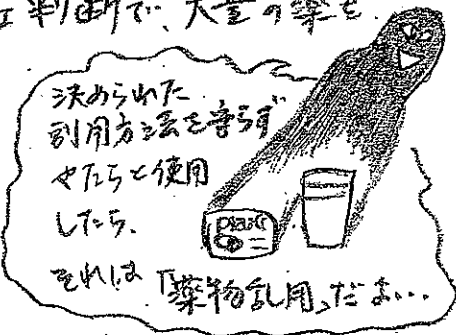 判断で、大量の薬を
決められた
副用方法を守らず
やたらと使用
したら、
それは「薬物乱用」だよ...